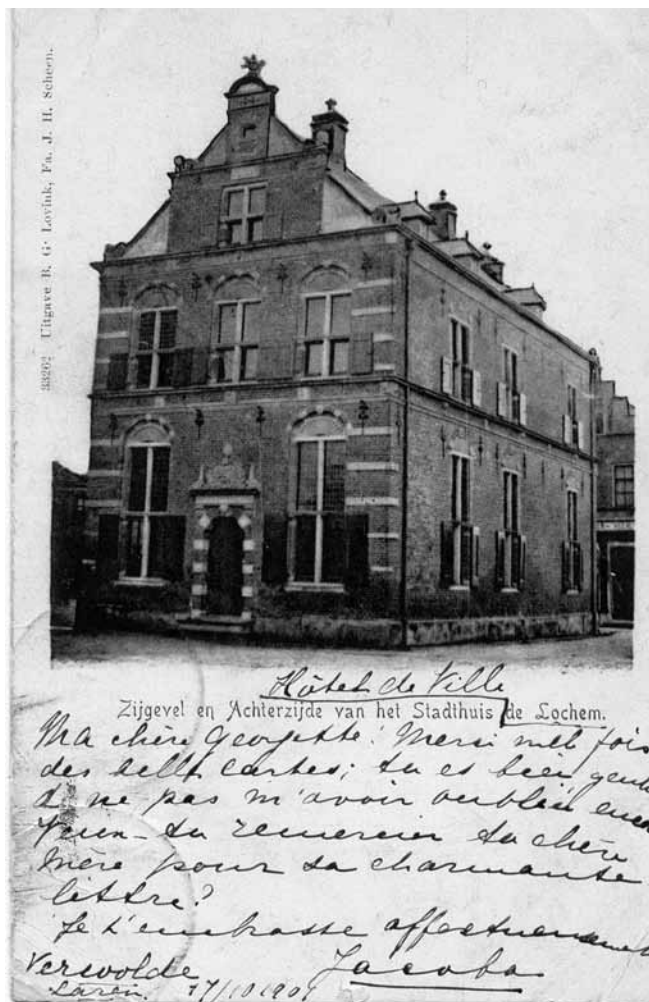 33262 Uitgave B. G. Lovink, Fa. J. H. Scheen.
Hôtel de Ville
Zijgevel en Achterzijde van het Stadthuis de Lochem.
Ma chère Georgette! Merci mille fois
des belles cartes; tu es bien gentille
d ne pas m'avoir oublié
Veux-tu remercier ta chère
Mère pour sa charmante
lettre?
Je t'embrasse affectueusement
Jacoba
Verwolde
Laren. 17/10 1901